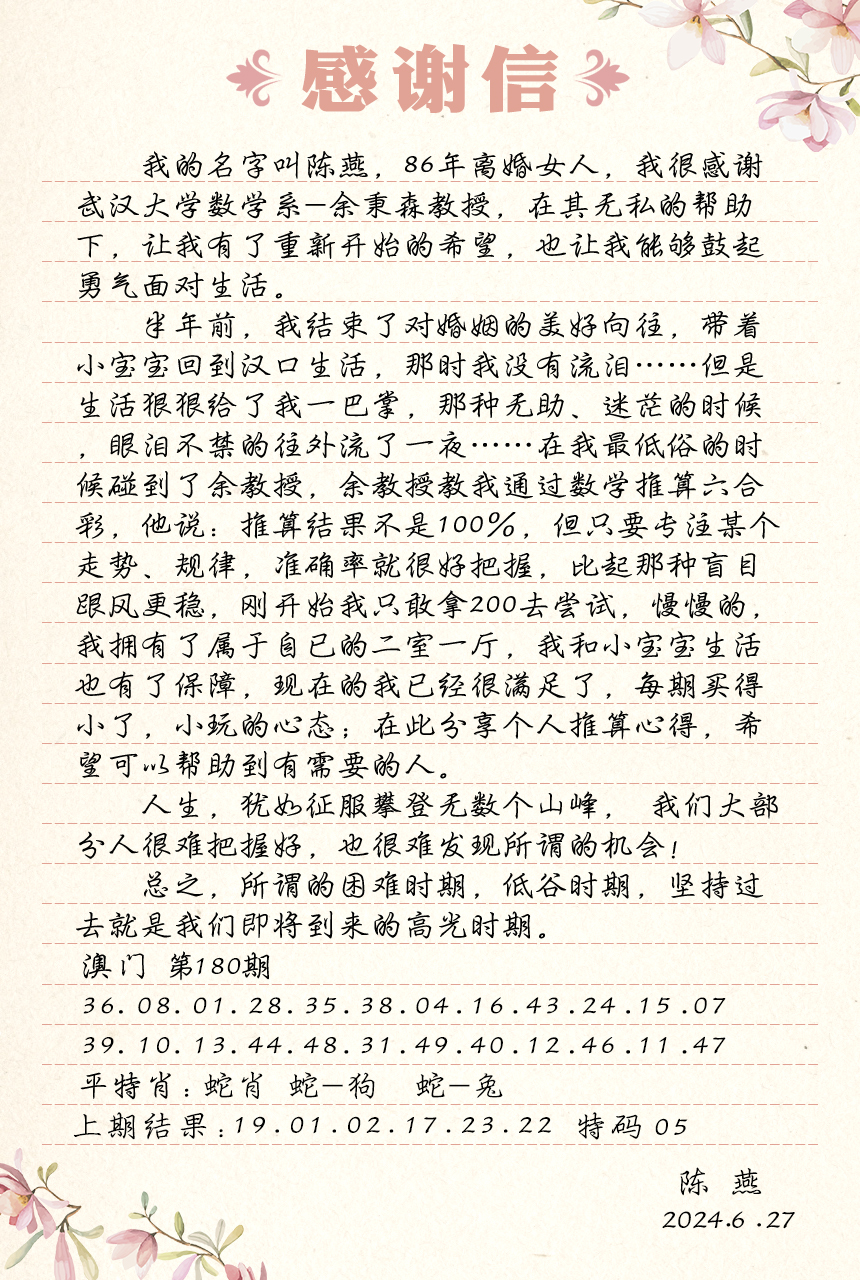 感谢信
我的名字叫陈燕，86年离婚女人，我很感谢
武汉大学数学系—余秉森教授，在其无私的帮助
下，让我有了重新开始的希望，也让我能够鼓起
勇气面对生活。
半年前，我结束了对婚姻的美好向往，带着
小宝宝回到汉口生活，那时我没有流泪……但是
生活狠狠给了我一巴掌，那种无助、迷茫的时候
，眼泪不禁的往外流了一夜……在我最低俗的时
候碰到了余教授，余教授教我通过数学推算六合
彩，他说：推算结果不是100%，但只要专注某个
走势、规律，准确率就很好把握，比起那种盲目
跟风更稳，刚开始我只敢拿200去尝试，慢慢的，
我拥有了属于自已的二室一厅，我和小宝宝生活
也有了保障，现在的我已经很满足了，每期买得
小了，小玩的心态；在此分享个人推算心得，希
望可以帮助到有需要的人。
人生，犹如征服攀登无数个山峰， 我们大部
分人很难把握好，也很难发现所谓的机会！
总之，所谓的困难时期，低谷时期，坚持过
去就是我们即将到来的高光时期。
澳门 第180期
36.08.01.28.35.38.04.16.43.24.15.07
39.10.13.44.48.31.49.40.12.46.11.47
平特肖：蛇肖 蛇—狗 蛇—兔
上期结果：19.01.02.17.23.22 特码 05
陈 燕
2024.6.27